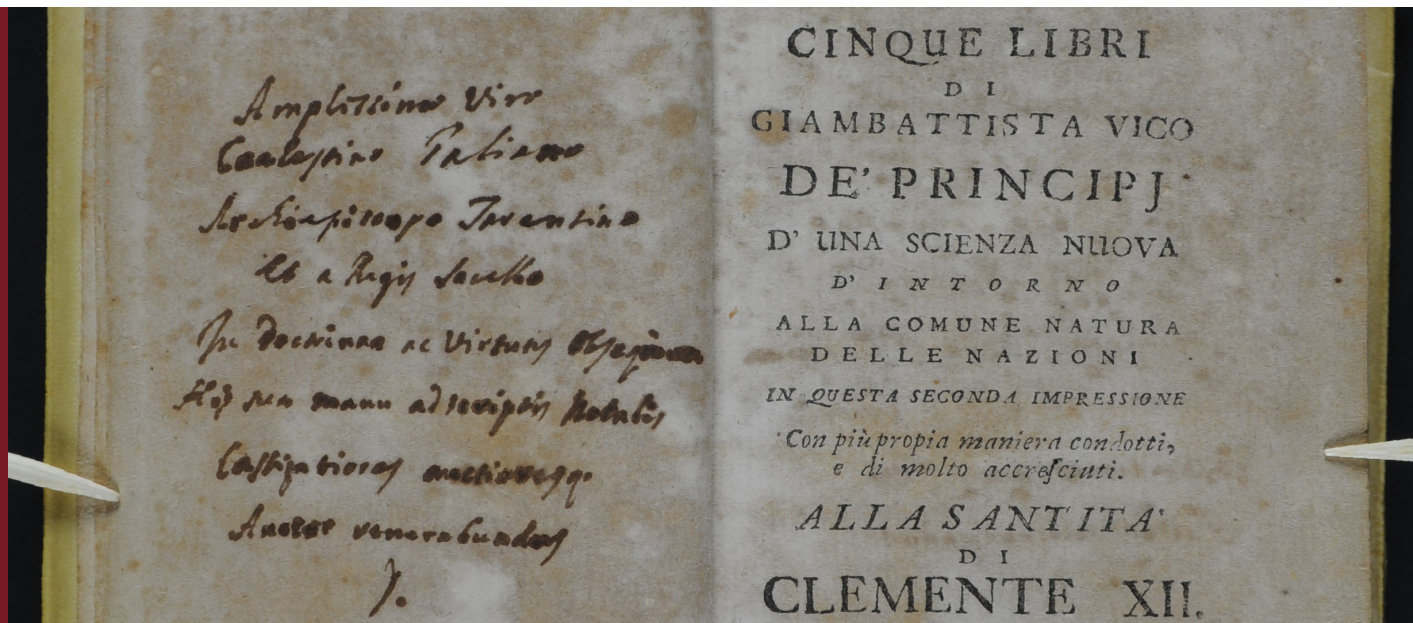 Amplissimo Viro
Coelestino Galiano
Archiepiscopo Tarentino
Et a Regis Sacello
In doctrinae ac Virtutis Obsequium
Hos sua manu adscriptis Notulis
Castigatiores auctioresq.
Auctor venerabundus
D.
CINQUE LIBRI
DI
GIAMBATTISTA VICO
DE' PRINCIPJ
D' UNA SCIENZA NUOVA
D' INTORNO
ALLA COMUNE NATURA
DELLE NAZIONI
IN QUESTA SECONDA IMPRESSIONE
Con più propia maniera condotti,
e di molto accreſciuti.
ALLA SANTITA'
DI
CLEMENTE XII.